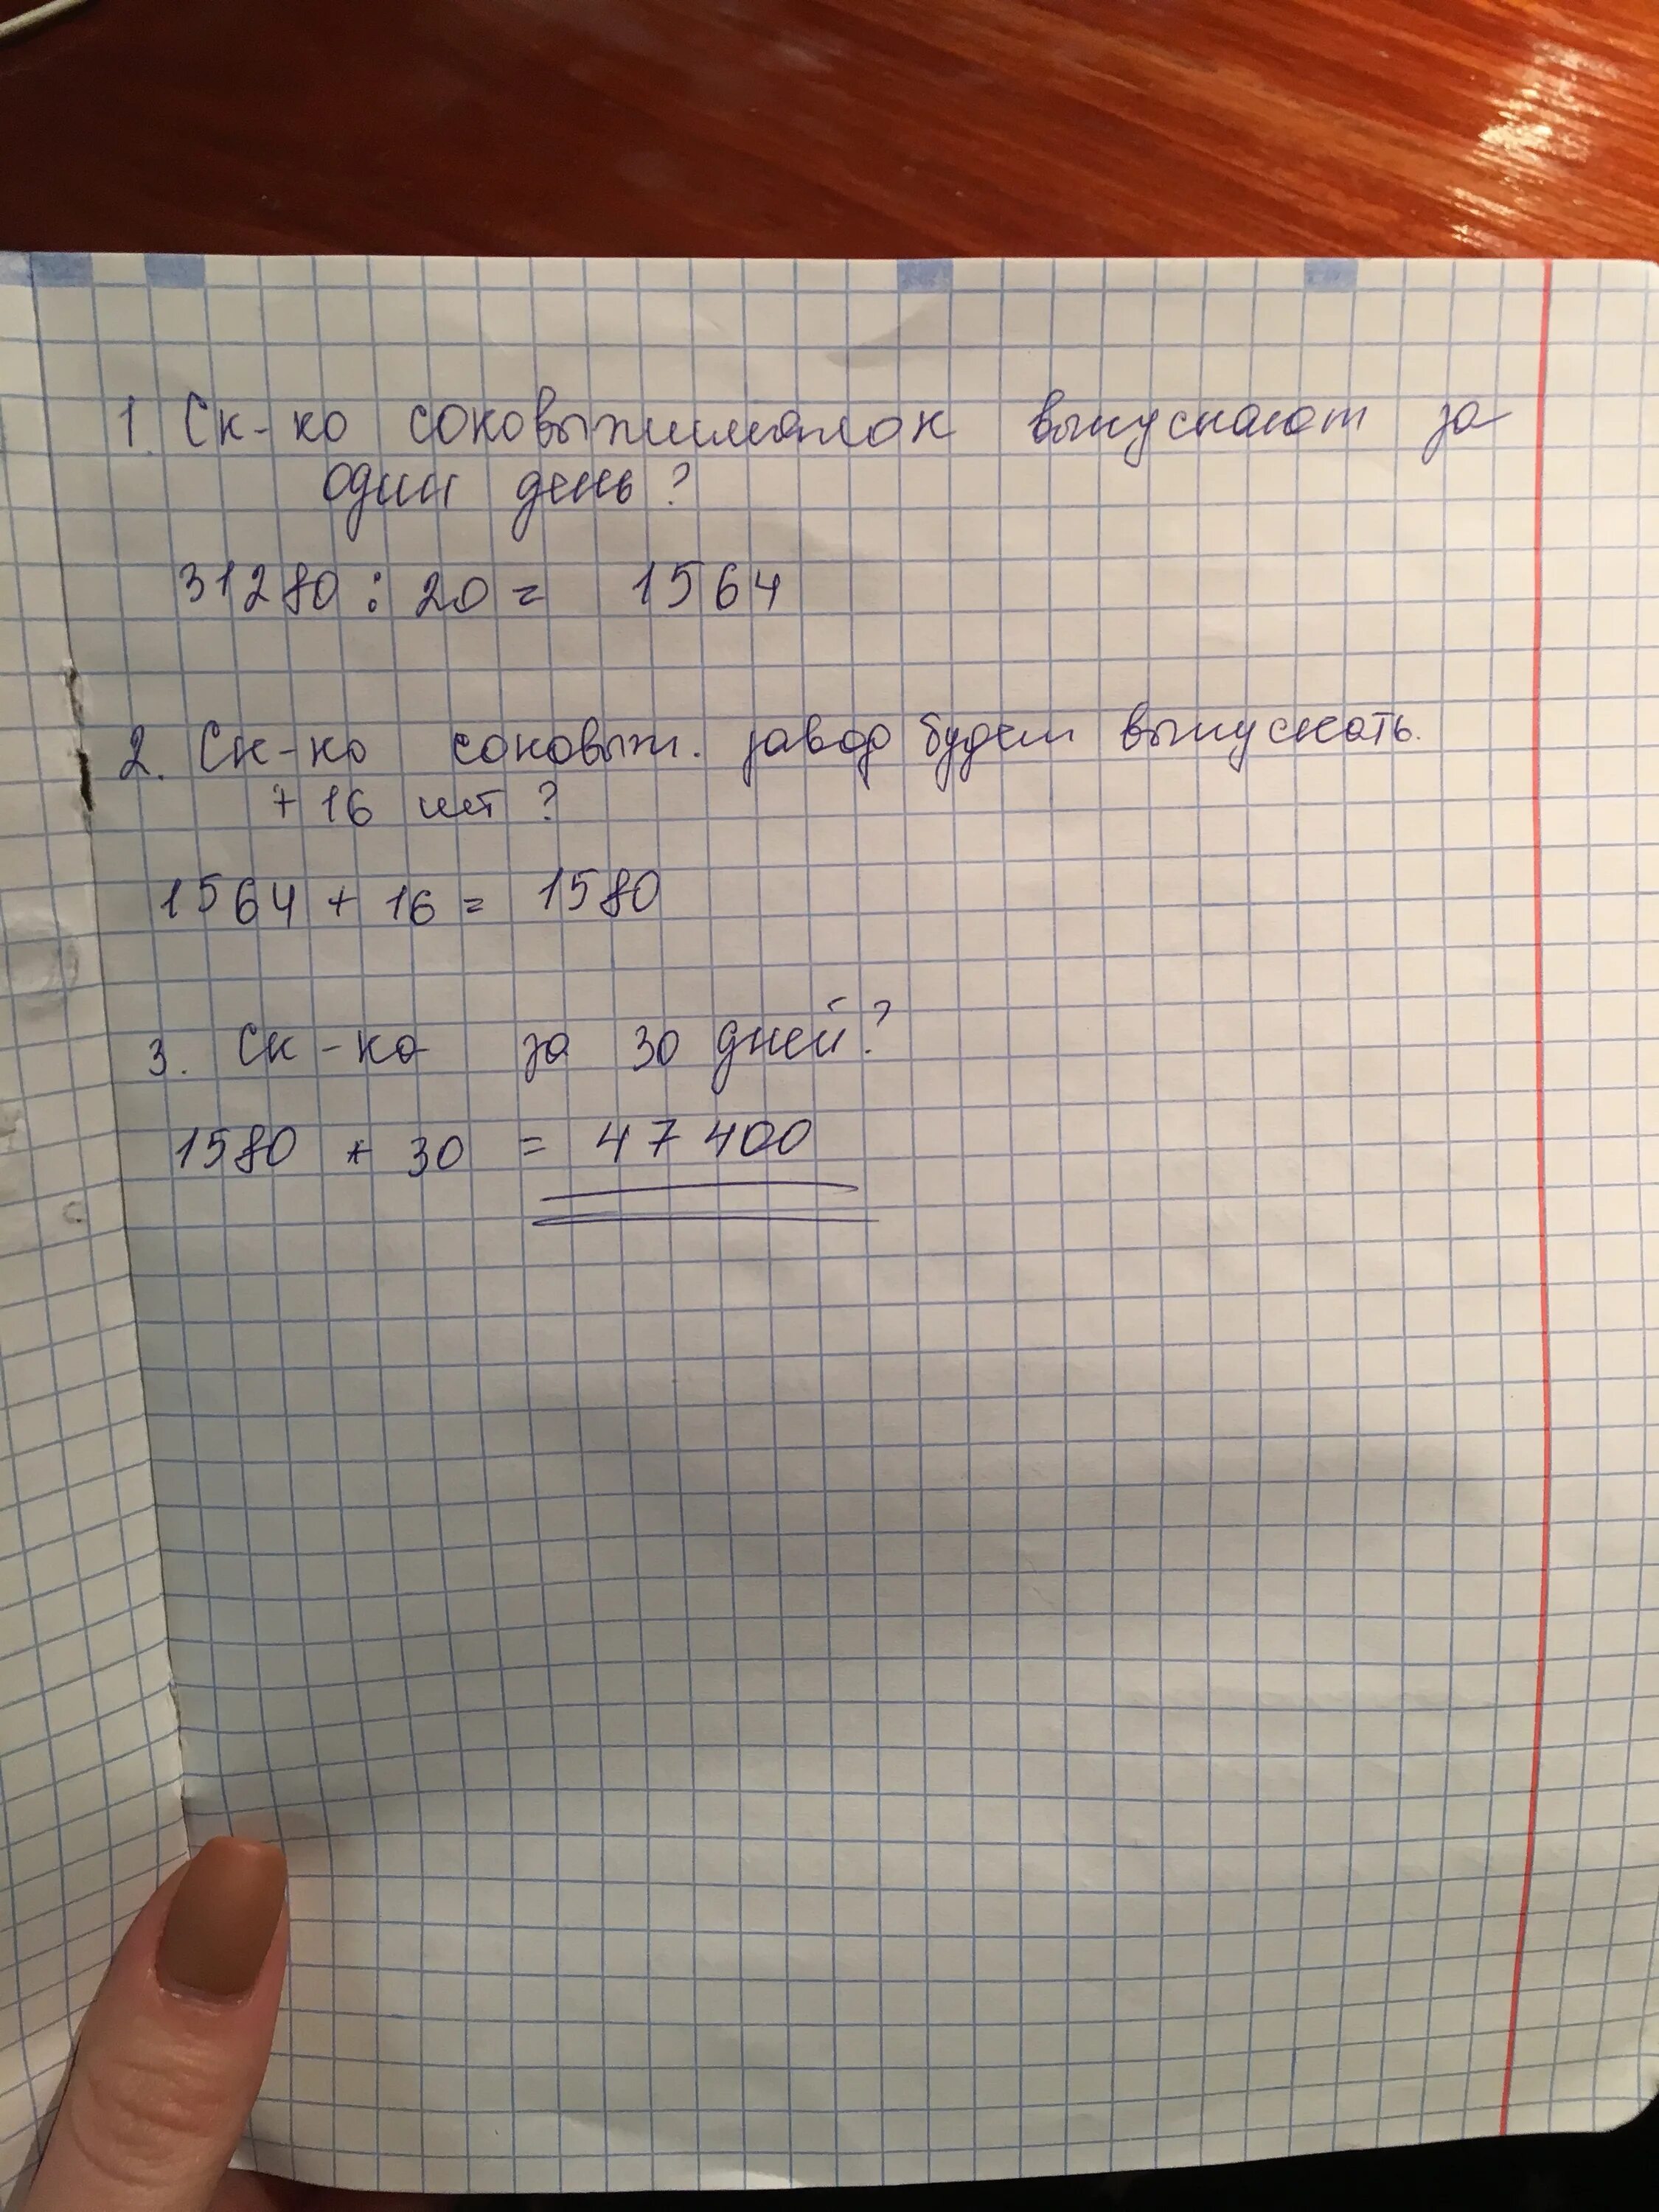 1. Ск-ко соковыжималок выпускают за
один день?
31280 : 20 = 1564
2. Ск-ко соковыж. завод будет выпускать.
+ 16 шт ?
1564 + 16 = 1580
3. Ск-ко за 30 дней?
1580 * 30 = 47 400